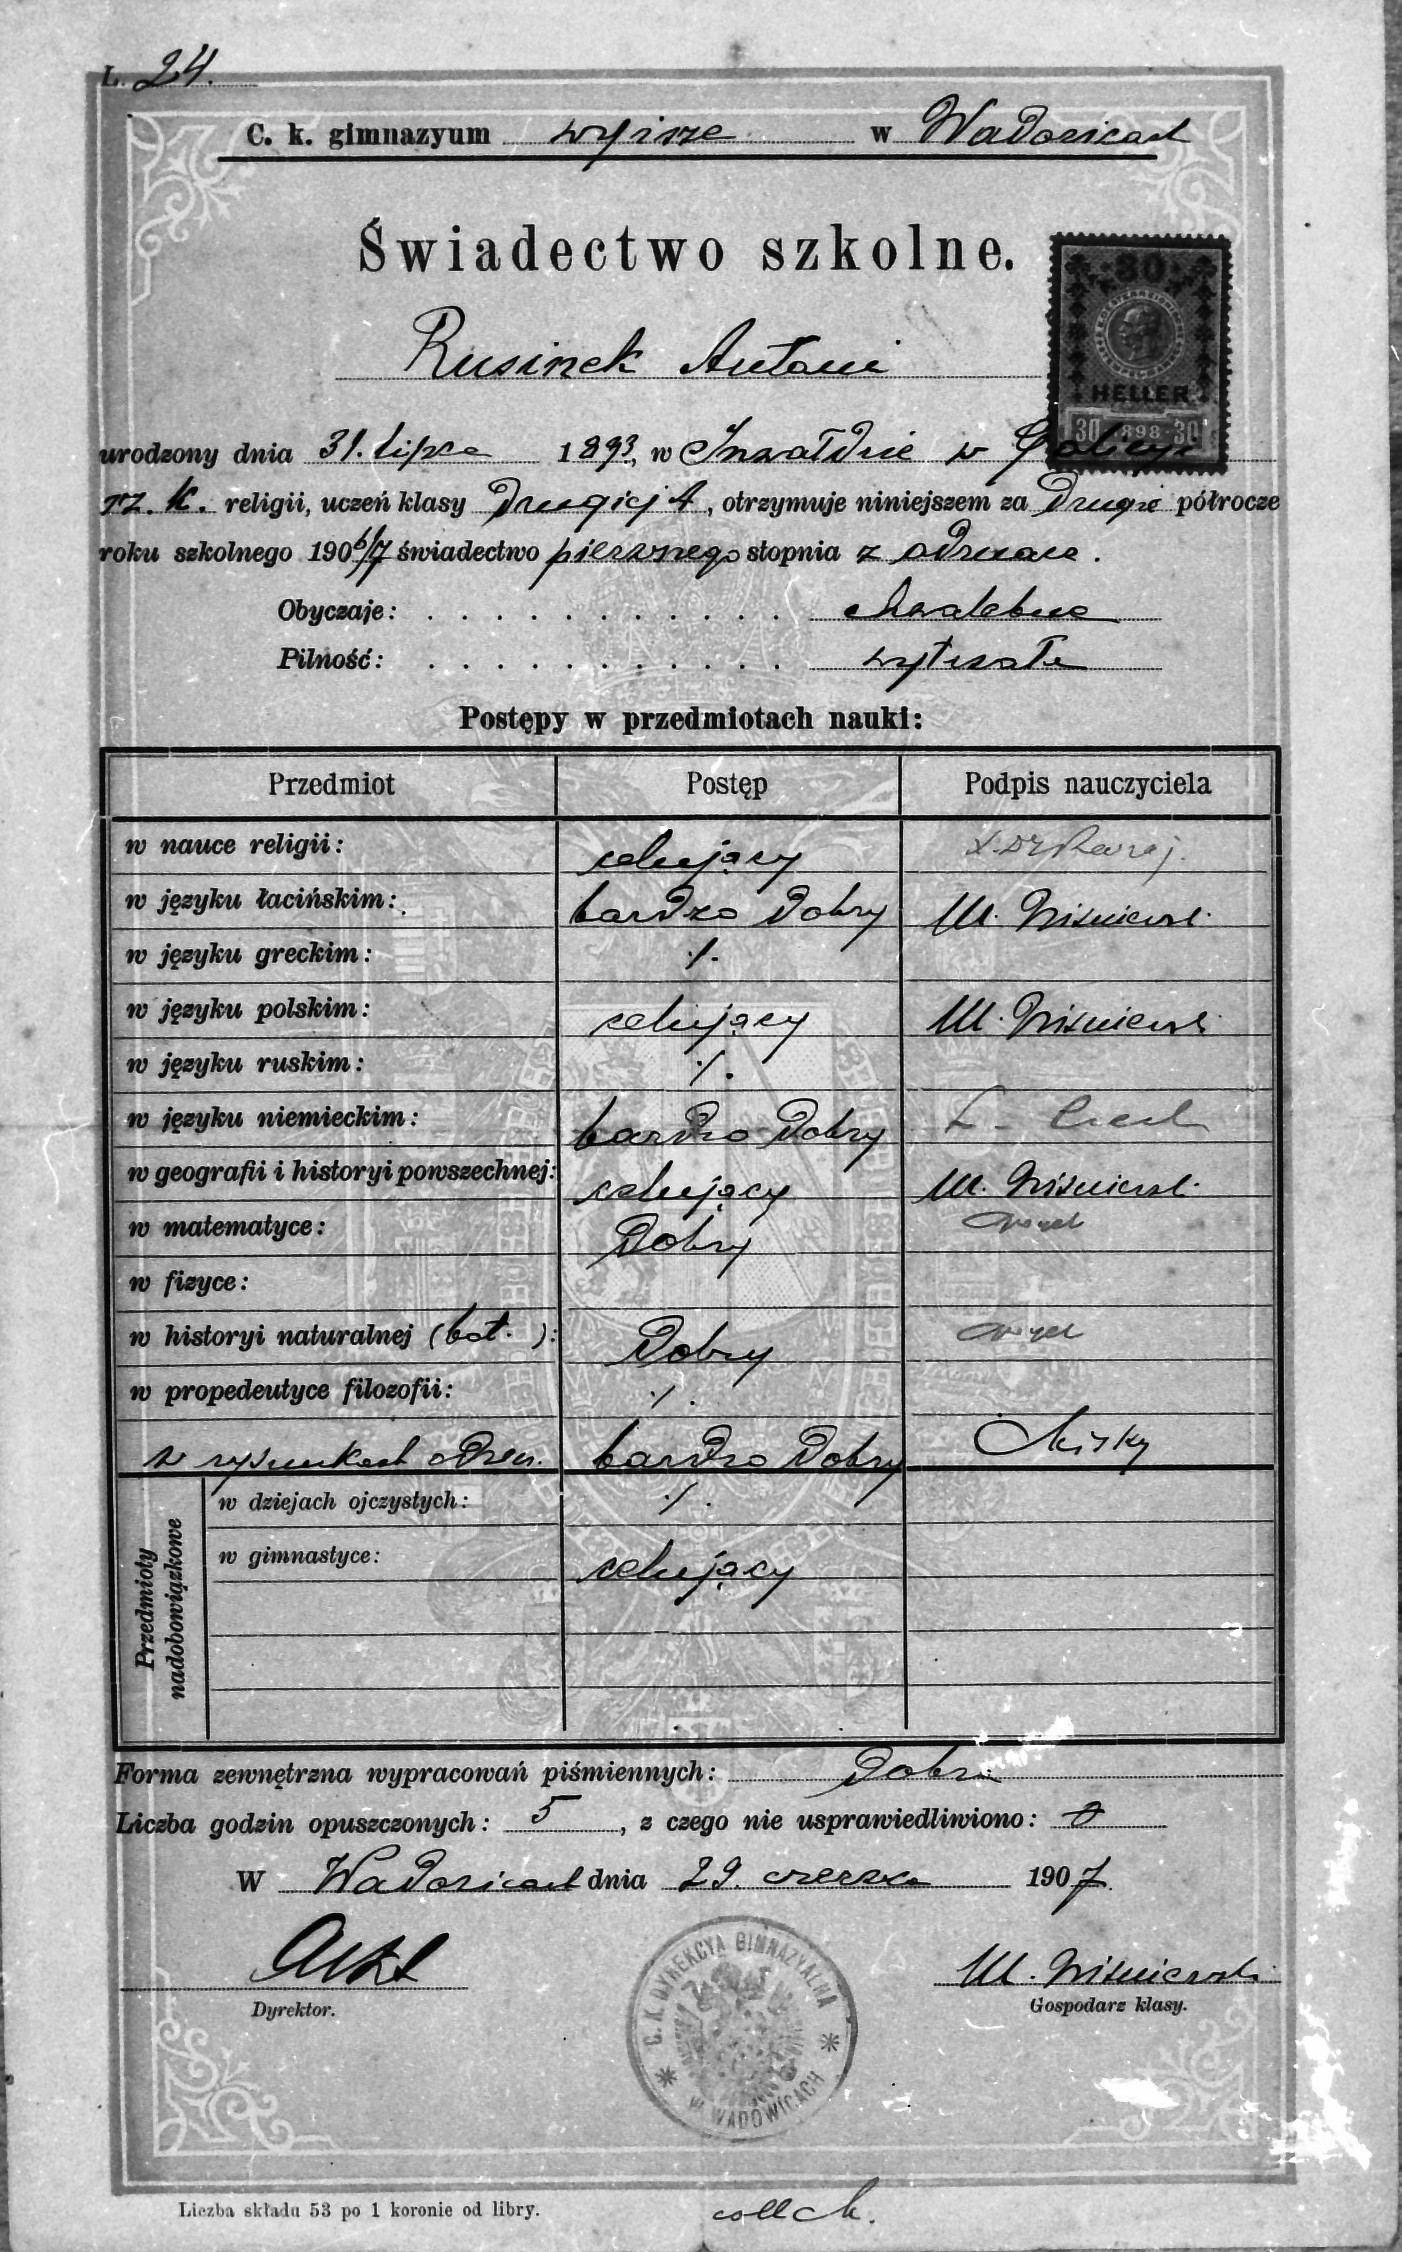 L. 24.
C. k. gimnazyum wyższe w Wadowicach
Świadectwo szkolne.
30
HELLER
30 1898 30
Rusinek Antoni
urodzony dnia 31. lipca 1893, w Inwałdzie w Galicyi
rz. k. religii, uczeń klasy drugiej A, otrzymuje niniejszem za drugie półrocze
roku szkolnego 1906/7 świadectwo pierwszego stopnia z odznacz.
Obyczaje: chwalebne
Pilność: wytrwała
Postępy w przedmiotach nauki:
Przedmiot Postęp Podpis nauczyciela
w nauce religii: celujący
w języku łacińskim: bardzo dobry M. Wiśniewski
w języku greckim: ./.
w języku polskim: celujący M. Wiśniewski
w języku ruskim: ./.
w języku niemieckim: bardzo dobry
w geografii i historyi powszechnej: celujący M. Wiśniewski
w matematyce: dobry
w fizyce:
w historyi naturalnej (bot. ): dobry
w propedeutyce filozofii: ./.
w rysunkach odręcz. bardzo dobry
Przedmioty nadobowiązkowe
w dziejach ojczystych: ./.
w gimnastyce: celujący
Forma zewnętrzna wypracowań piśmiennych: dobra
Liczba godzin opuszczonych: 5, z czego nie usprawiedliwiono: 0
W Wadowicach dnia 29. czerwca 1907.
M. Wiśniewski
Dyrektor. Gospodarz klasy.
C. K. DYREKCYA GIMNAZYALNA
W WADOWICACH
Liczba składu 53 po 1 koronie od libry.